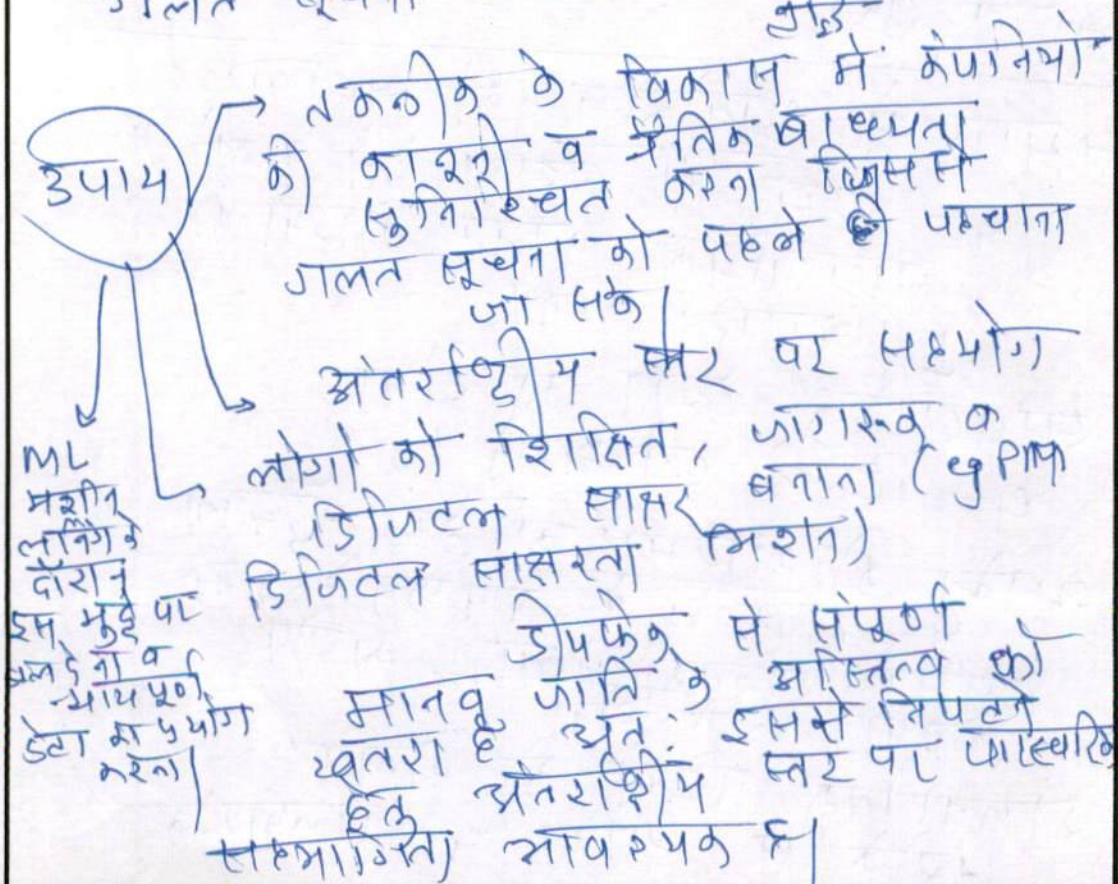 गलत सूचना
उपाय
तकनीक के विकास में कंपनियों
की कानूनी व नैतिक बाध्यता
सुनिश्चित करना जिससे
गलत सूचना को पहले ही पहचाना
जा सके।
अंतर्राष्ट्रीय स्तर पर सहयोग
लोगों को शिक्षित, जागरूक व
डिजिटल साक्षर बनाना (
डिजिटल साक्षरता मिशन)
ML
मशीन
लर्निंग के
दौरान
इस मुद्दे पर
बल देना व
न्यायपूर्ण
डेटा का प्रयोग
करना।
डीपफेक से संपूर्ण
मानव जाति के अस्तित्व को
खतरा है अत: इससे निपटने
हेतु अंतर्राष्ट्रीय स्तर पर पारस्परिक
सहभागिता आवश्यक है।